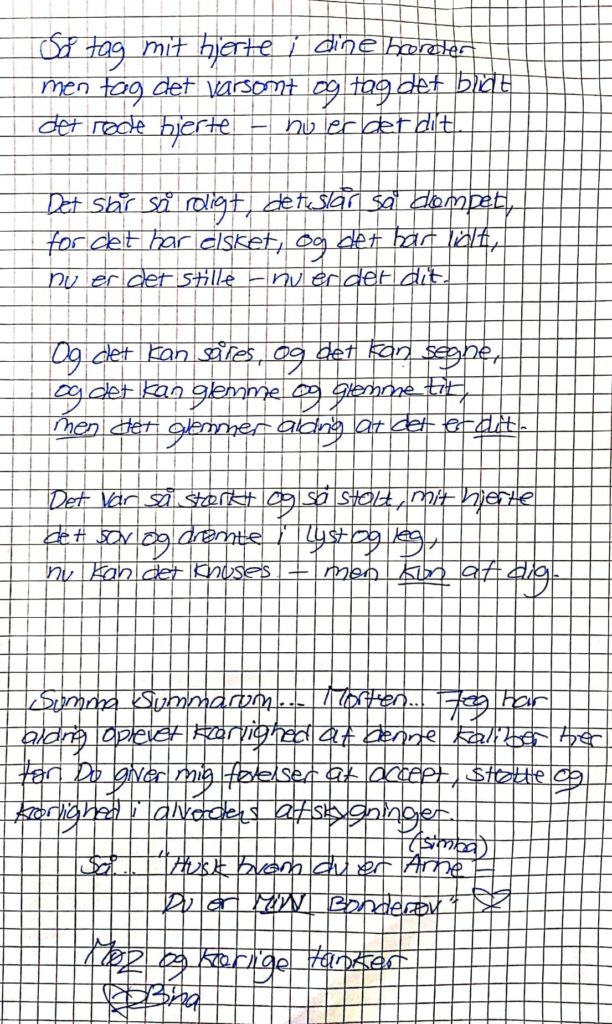 Så tag mit hjerte i dine hænder
men tag det varsomt og tag det blidt
det røde hjerte – nu er det dit.
Det slår så roligt, det slår så dæmpet,
for det har elsket, og det har lidt,
nu er det stille – nu er det dit.
Og det kan såres, og det kan segne,
og det kan glemme og glemme tit,
men det glemmer aldrig at det er dit.
Det var så stærkt og så stolt, mit hjerte
det sov og drømte i lyst og leg,
nu kan det knuses – men kun af dig.
Summa Summarum... Morten... Jeg har
aldrig oplevet kærlighed af denne kaliber her
før. Du giver mig følelser af accept, støtte og
kærlighed i alverdens afskygninger.
(simba)
Så... "Husk hvem du er Arne –
Du er MIN Bonderøv" ♡
Møz og kærlige tanker
♡ Bina